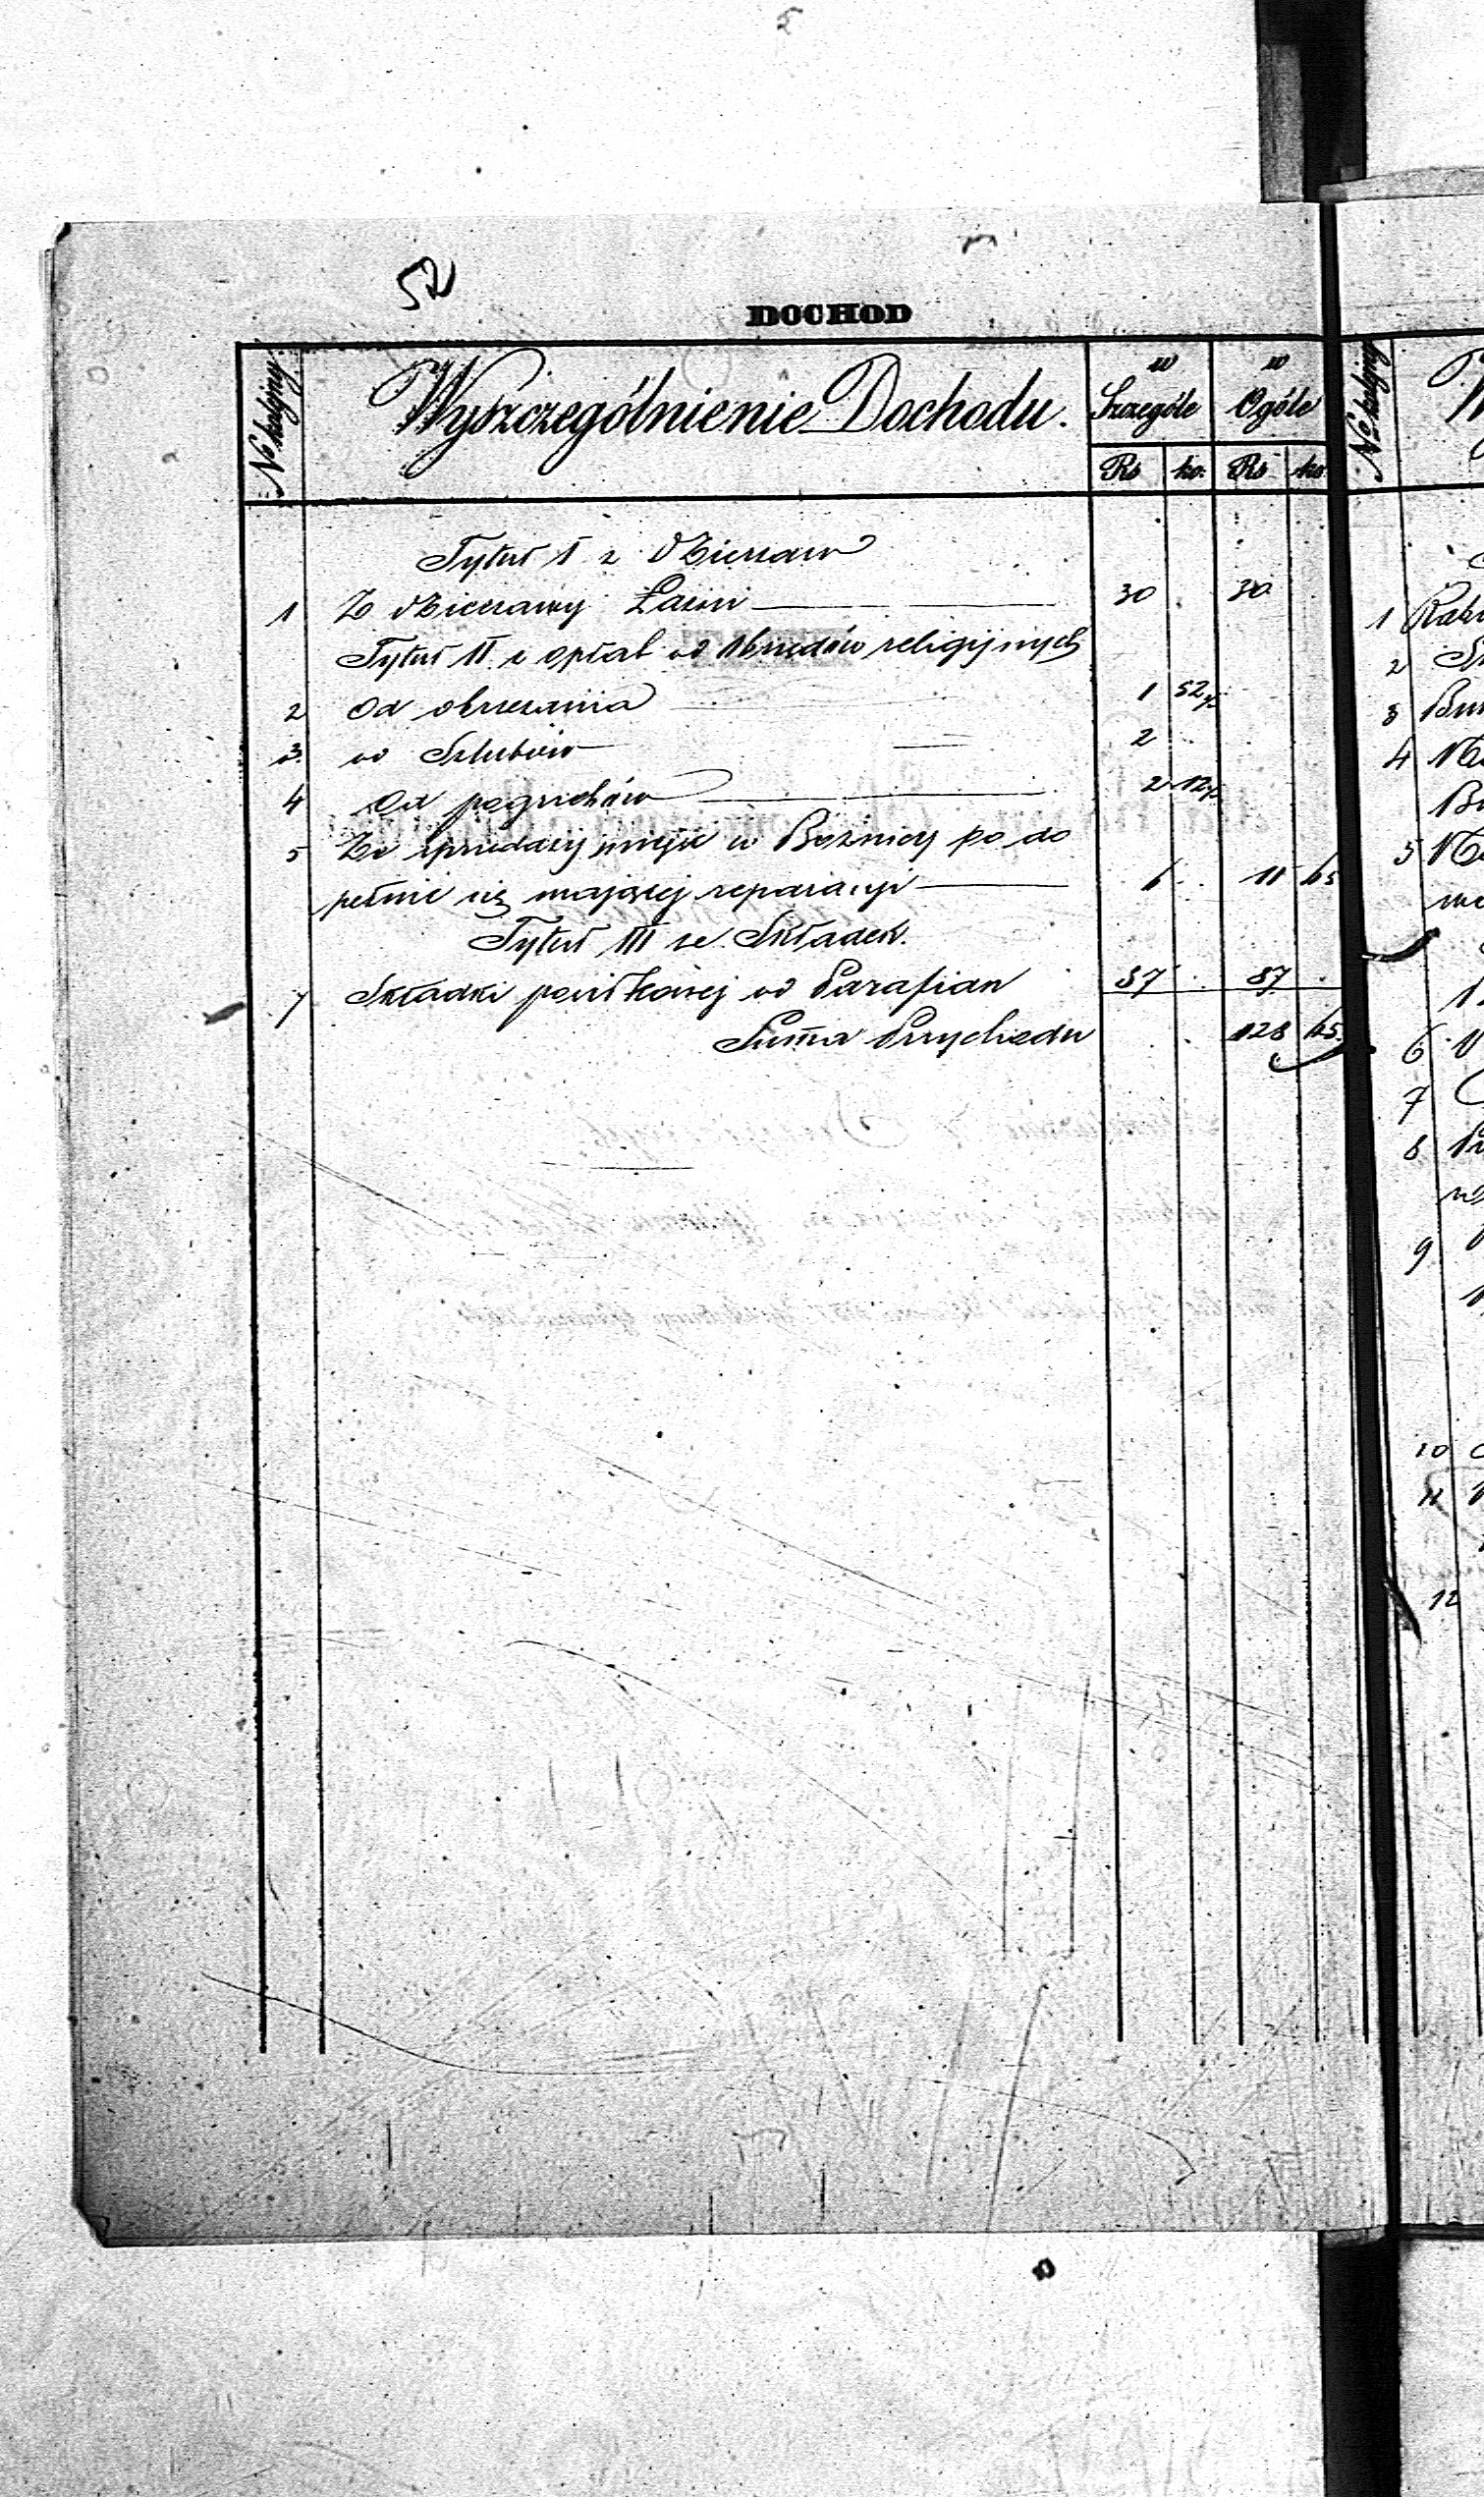 52
DOCHOD
№ kolejny Wyszczególnienie Dochodu. w Szczególe w Ogóle
Rs ko: Rs ko
Tytuł I z Dzierzaw
1 Z Dzierzawy Łazni 30 30
Tytuł II z opłat od Obrzędów religijnych
2 Od obrzezania 1 52½
3. od Szlubów 2
4 Od pogrzebów 2 12½
5 Ze sprzedaży miejsc w Bożnicy po do
pełnić się mającej reparacyi 6 11 65
Tytuł III ze Składek.
7 Składki od Parafian 87 87
Suma Przychodu 128 65.
№ kolejny
1
2
3
4
5
6
7
8
9
10
11
12